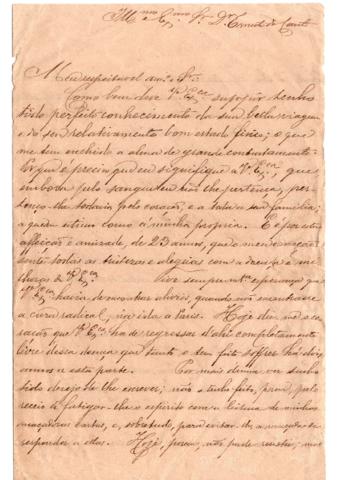 Illmo e Exmo Sr. Dr. Ernesto do Canto
Meu respeitavel amo. e Sr.
Como bem deve Va. Exca. suppôr tenho
tido perfeito conhecimento da sua bella viagem
e do seu relativamente bom estado fisico; o que
me tem enchido a alma de grande contentamento.
É que é preciso que eu signifique a Va. Exca., que,
embora pelo sangue eu não lhe pertença, per-
tenço-lhe todavia pelo coração, e a toda a sua familia,
a quem estimo como á minha propria. E por esta
affeição e amizade, de 23 annos, que o meu coração
sente todas as tristezas e alegrias com a doença e me-
lhoras de Va. Exca.
Tive sempre esperança que
Va. Exca. havia de encontrar alivios, quando não encontrasse
a cura radical, na ida a Paris. Hoje diz-me o co-
ração que Va. Exca. ha de regressar d'ahi completamente
livre dessa doença que tanto o tem feito soffrer ha dois
annos a esta parte.
Por mais d'uma vez tenho
tido desejo de lhe escrever; não o tenho feito, porem, pelo
receio de fatigar-lhe o espirito com a leitura de minhas
maçadoras cartas, e, sobretudo, para evitar-lhe a maçada de
responder a ellas. Hoje, porem, não pude resistir, mas